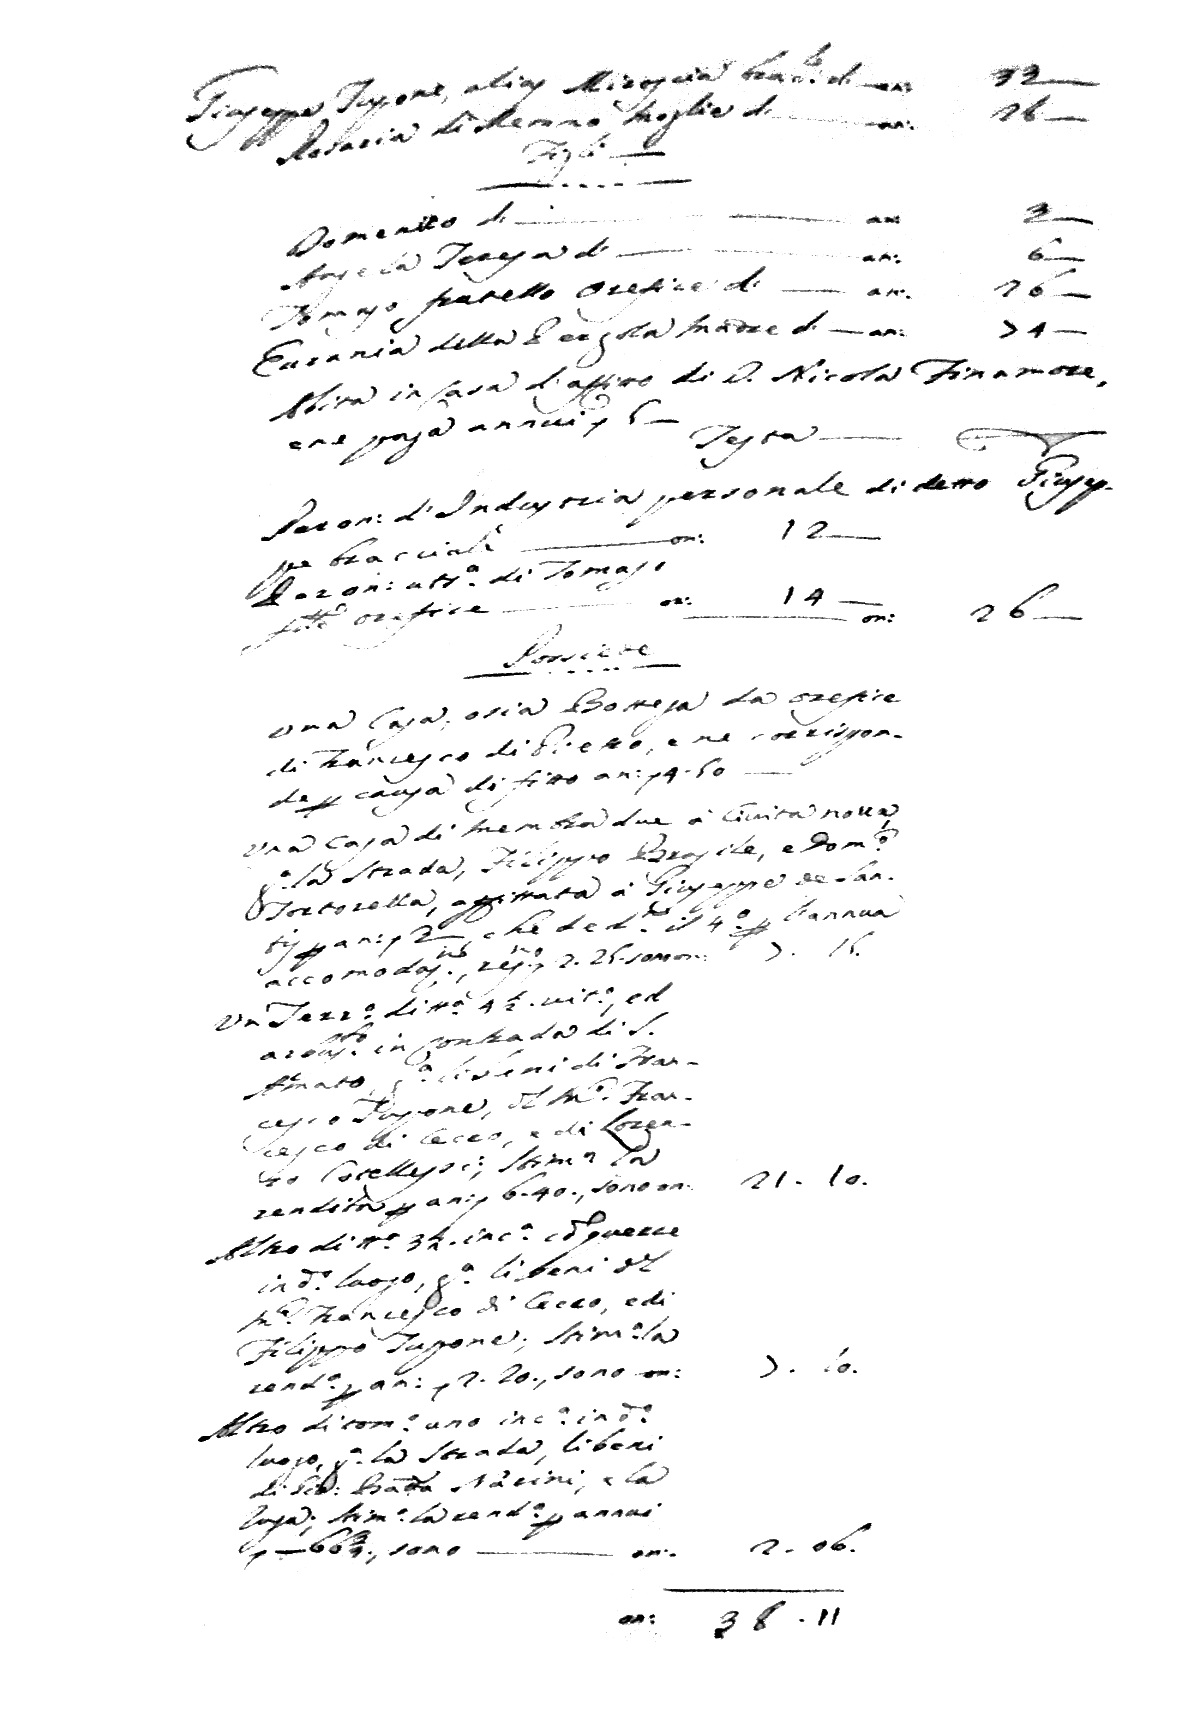 Giuseppe Iupone, alias Miroscia bracc.le di — an: 33 —
Rosaria di Memmo, moglie di — an: 26 —
Figli —
Domenico di — an: 3 —
Angela Teresa di — an: 6 —
Tomaso fratello orefice di — an: 26 —
Eurania della Pergola madre di — an: 74 —
Abita in casa d'affitto di D. Nicola Finamore,
e ne paga annui 5 —
Testa —
Per on: d'Industria personale di detto Giusep-
pe bracciale — on: 12 —
Per on: att.a di Tomaso
orefice — on: 14 —
on: 26 —
Possiede
Una Casa, osia Bottega da orefice
di Francesco di Pietro, e ne corrispon-
de p causa di fitto an: 4.50 —
Una casa di membra due a Civita nova,
g.a la Strada, Filippo Brasile, e Dom.o
Tortorella, affittata a Giuseppe de San-
tis p an: 3 —, che ded.o il 4.o p l'annua
accomodaz., 2.25. sono on: 7. 15.
Un Terr.o di tt.a 4 ½. vit.o, ed
in contrada di S.
Amato, g.a li beni di Fran-
cesco Iupone, del M.o Fran-
cesco di Cecco, e di Loren-
zo Corellessi; stim.a la
rendita p an: 6.40., sono on: 21. 10.
Altro di tt.a 3 ½. inc.o cō querce
in d.o luogo, g.a li beni del
M.o Francesco di Cecco, e di
Filippo Iupone; stim.a la
rend.a p an: 2.20., sono on: 7. 10.
Altro di tom.o uno inc.o in d.o
luogo, g.a la Strada, li beni
di Gio: Batta Narini, e la
stim.a la rend.a p annui
— 66 ⅔., sono — on: 2. 06.
on: 38. 11